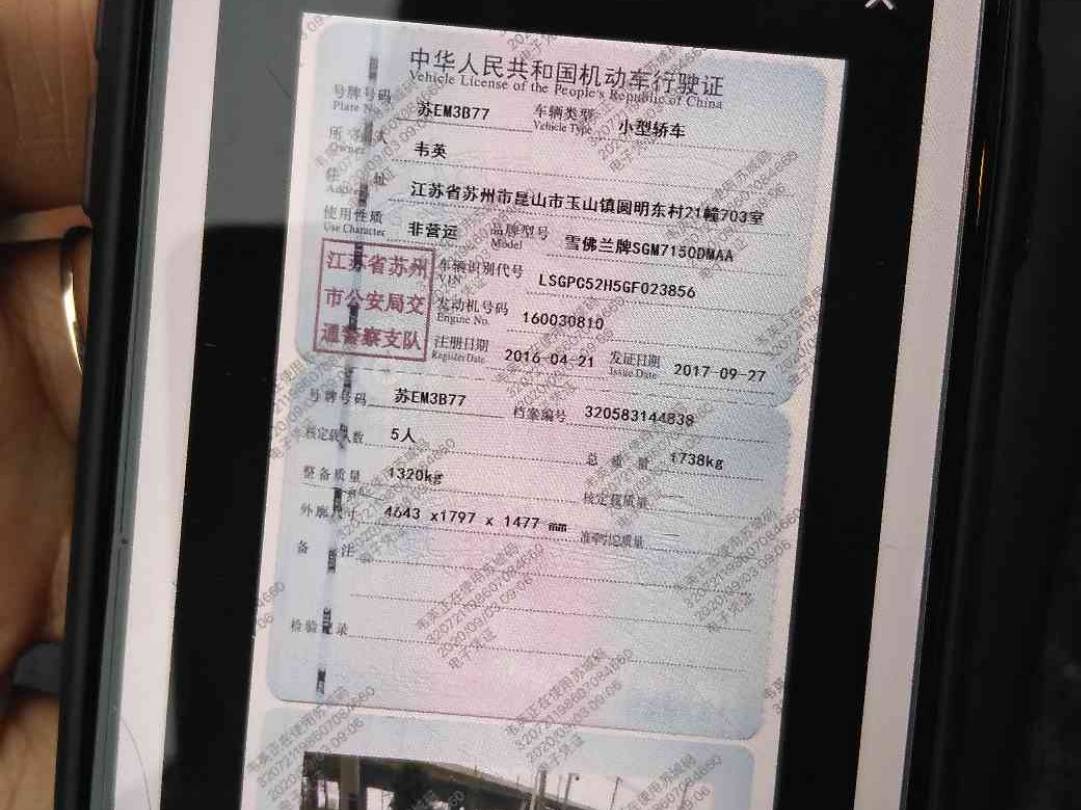 中华人民共和国机动车行驶证
Vehicle License of the People's Republic of China
号牌号码 苏EM3B77 车辆类型 小型轿车
Plate No. Vehicle Type
所有人 韦英
Owner
住址 江苏省苏州市昆山市玉山镇圆明东村21幢703室
Address
使用性质 非营运 品牌型号 雪佛兰牌SGM7150DMAA
Use Character Model
江苏省苏州
市公安局交
通警察支队
车辆识别代号 LSGPC52H5GF023856
VIN
发动机号码 160030810
Engine No.
注册日期 2016-04-21 发证日期 2017-09-27
Register Date Issue Date
号牌号码 苏EM3B77 档案编号 320583144838
核定载人数 5人 总质量 1738kg
整备质量 1320kg 核定载质量 —
外廓尺寸 4643 x1797 x 1477 mm 准牵引总质量 —
备注
检验记录
韦英正在使用苏城码
320721198607084660
2020/09/03 09:06
电子凭证